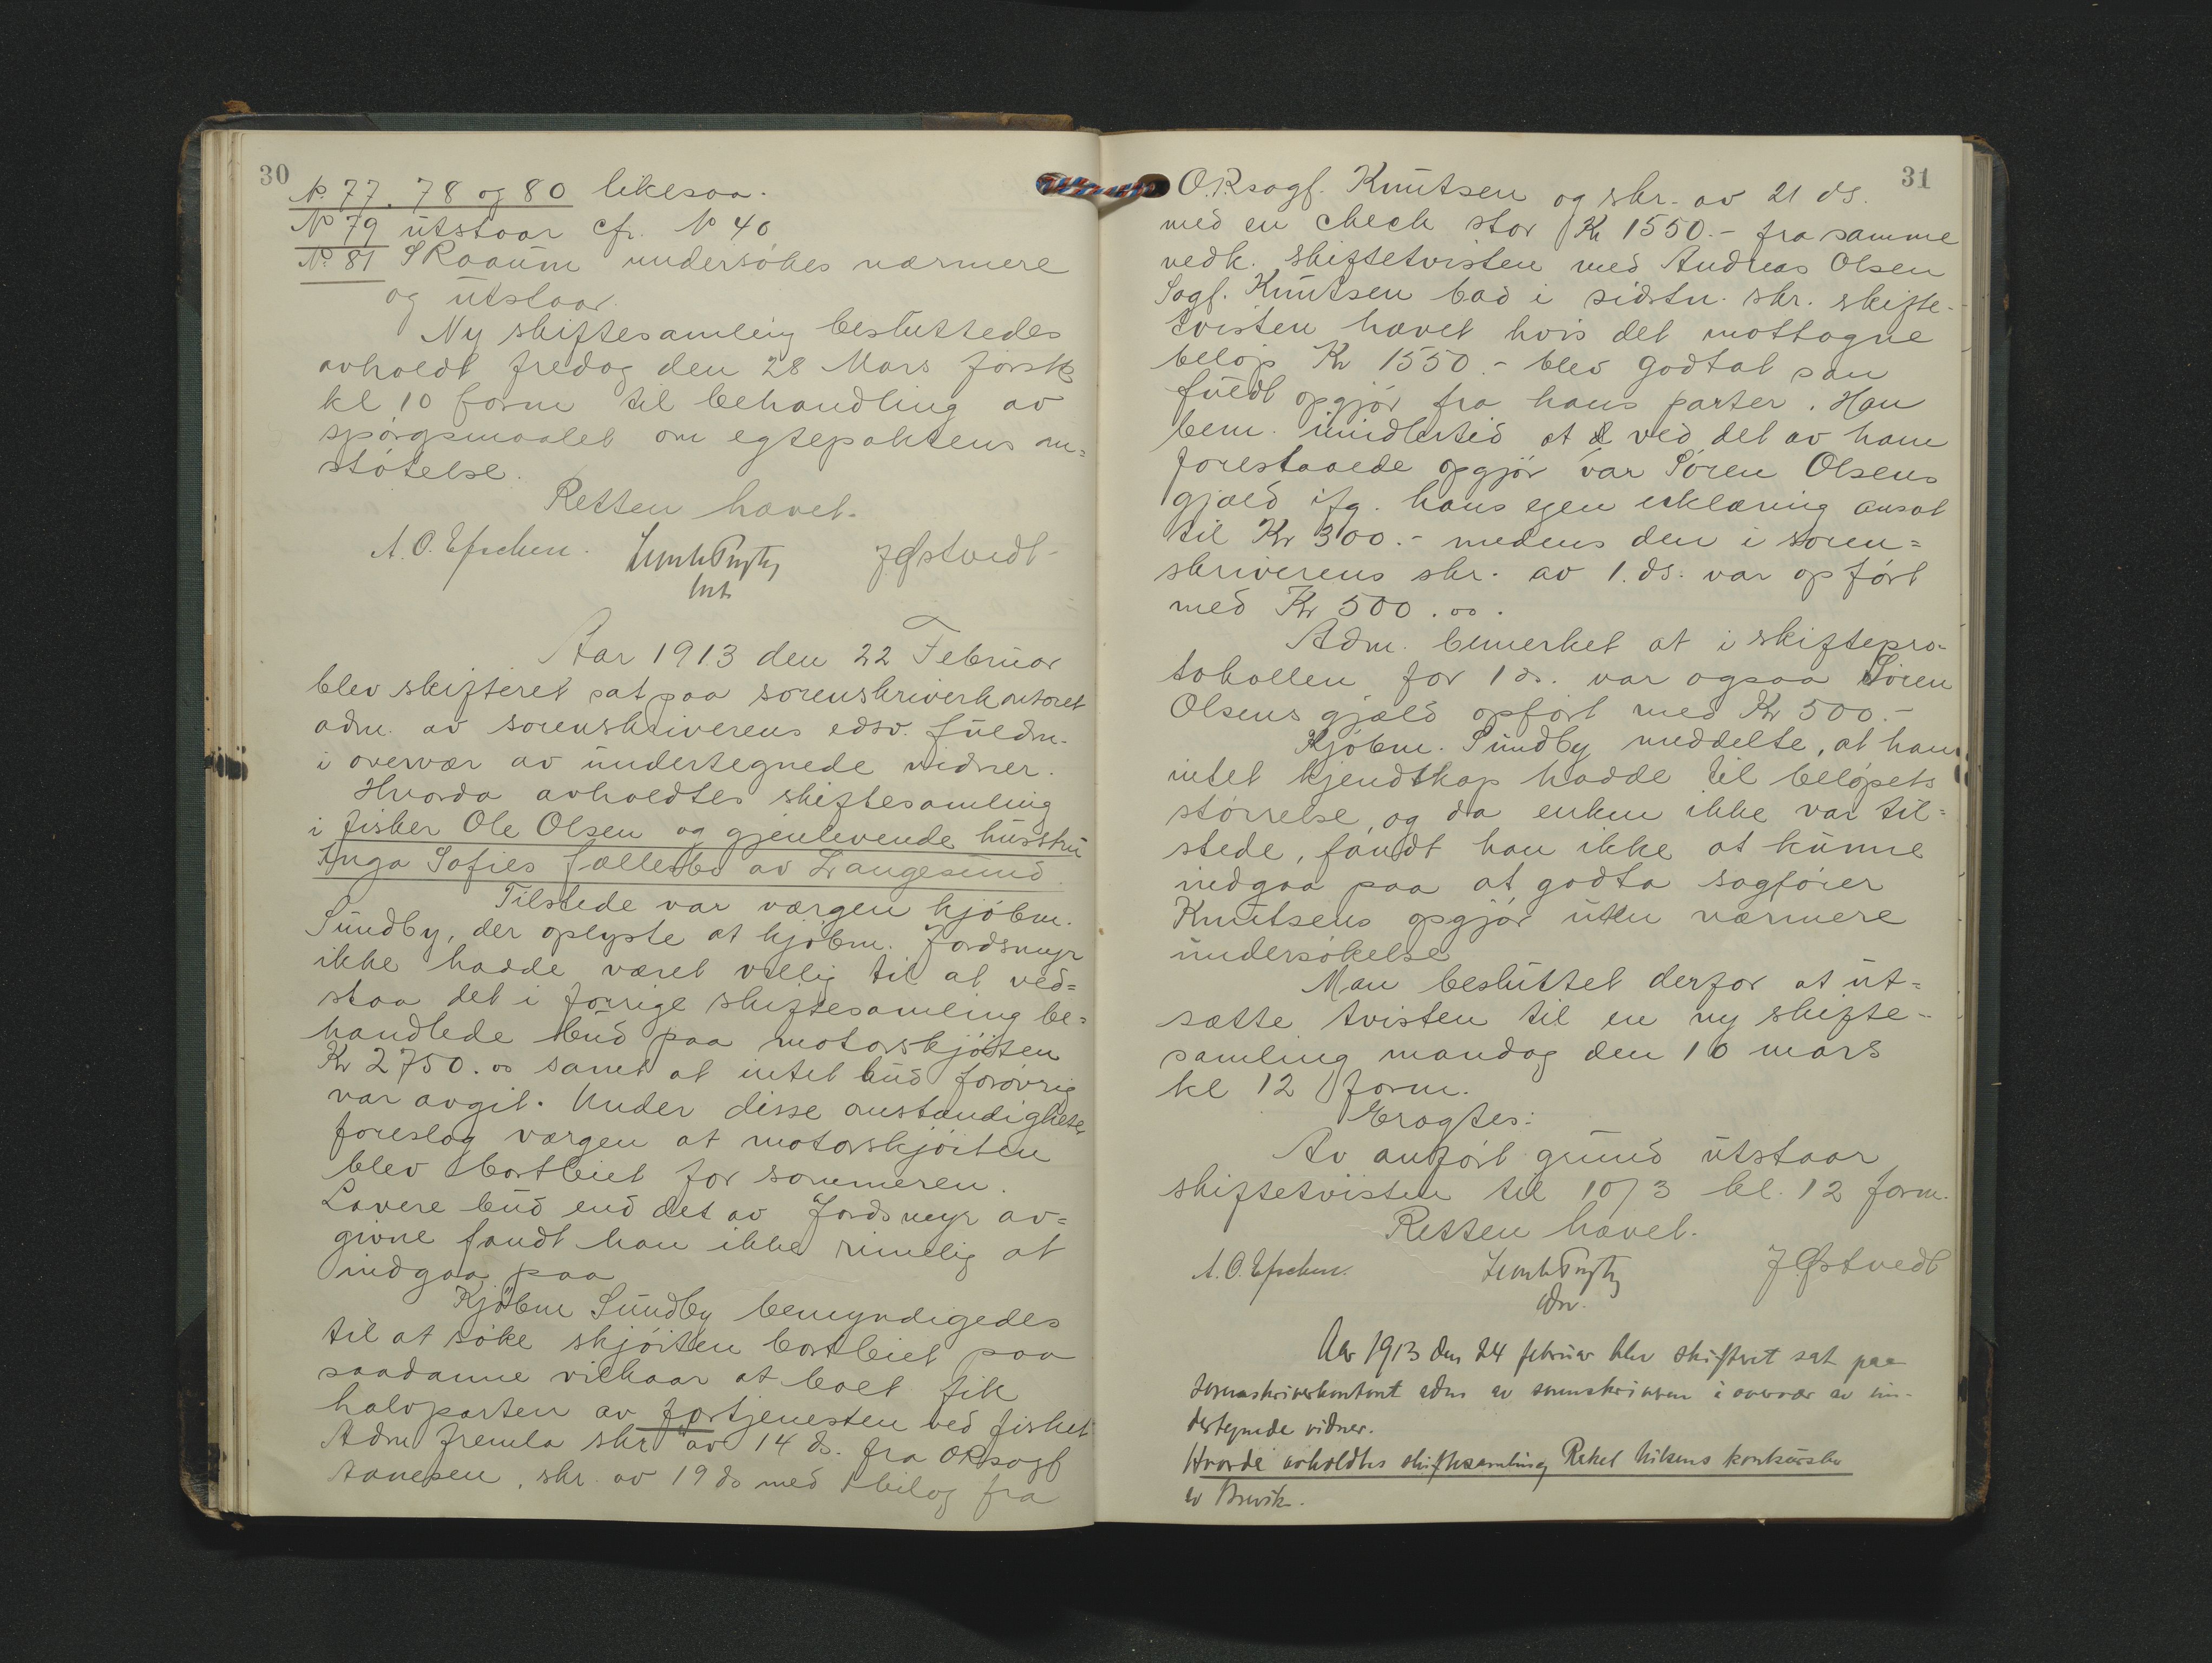 30
No 77. 78 og 80 likesaa.
No 79 utstaar cfr. No 40
No 81 S Raaum undersökes nærmere
og utstaar.
Ny skiftesamling besluttedes
avholdt fredag den 28 Mars førstk
kl 10 form til behandling av
spörgsmaalet om egtepaktens om=
støtelse.
Retten hævet.
J. Østvedt
Aar 1913 den 22 Februar
blev skifteret sat paa sorenskriverkontoret
adm. av sorenskriverens edsv. fuldm.
i overvær av undertegnede vidner.
Hvorda avholdtes skiftesamling
i fisker Ole Olsen og gjenlevende hustru
Inga Sofies fællesbo av Langesund.
Tilstede varværgen kjøbm.
Sundby, der oplyste at kjøbm. Jordsmyr
ikke hadde været villig til at ved=
staa det i forrige skiftesamling be=
handlede bud paa motorskjöiten
Kr 2750.00 samt at intet bud forøvrig
var avgit. Under disse omstændigheter
foreslog værgen at motorskjöiten
blev bortleiet for sommeren.
Lavere bud end det av Jordsmyr av=
givne fandt han ikke rimelig at
indgaa paa
Kjøbm Sundby bemyndigedes
til at söke skjöiten bortleiet paa
saadanne vilkaar at boet fik
halvparten av fortjenesten ved fisket
Adm fremla skr av 14 ds. fra ORsagf
Aanesen, skr. av 19 ds med 1 bilag fra
31
O.R.sagf. Knutsen og skr. av 21 ds.
med en check stor Kr 1550.- fra samme
vedk. skiftetvisten med Andreas Olsen
Sagf. Knutsen bad i sidstn. skr. skifte-
tvisten hævet hvis det mottagne
beløp Kr 1550.- blev godtat som
fuldt opgjør fra hans parter. Han
bem. imidlertid at ved det av ham
forestaaede opgjør var Søren Olsens
gjæld ifg. hans egen erklæring ansat
til Kr 300.- medens den i soren=
skriverens skr. av 1. ds. var opført
med Kr 500.00.
Adm. bemerket at i skiftepro-
tokollen for 1 ds. var ogsaa Søren
Olsens gjæld opført med Kr 500.-
Kjøbm. Sundby meddelte, at han
intet kjendskap hadde til beløpets
størrelse, og da enken ikke var til=
stede, fandt han ikke at kunne
indgaa paa at godta sagfører
Knutsens opgjør uten nærmere
undersökelse
Man besluttet derfor at ut=
sætte tvisten til en ny skifte-
samling mandag den 10 mars
kl 12 form.
Eragtes:
Av anført grund utstaar
skiftetvisten til 10/3 kl. 12 form.
Retten hævet.
J. Østvedt
Aar 1913 den 24 februar blev skifteret sat paa
sorenskriverkontoret adm av sorenskriveren i overvær av un-
dertegnede vidner.
Hvorda avholdtes skiftesamling Rakel Nilsens konkursbo
av Brevik.